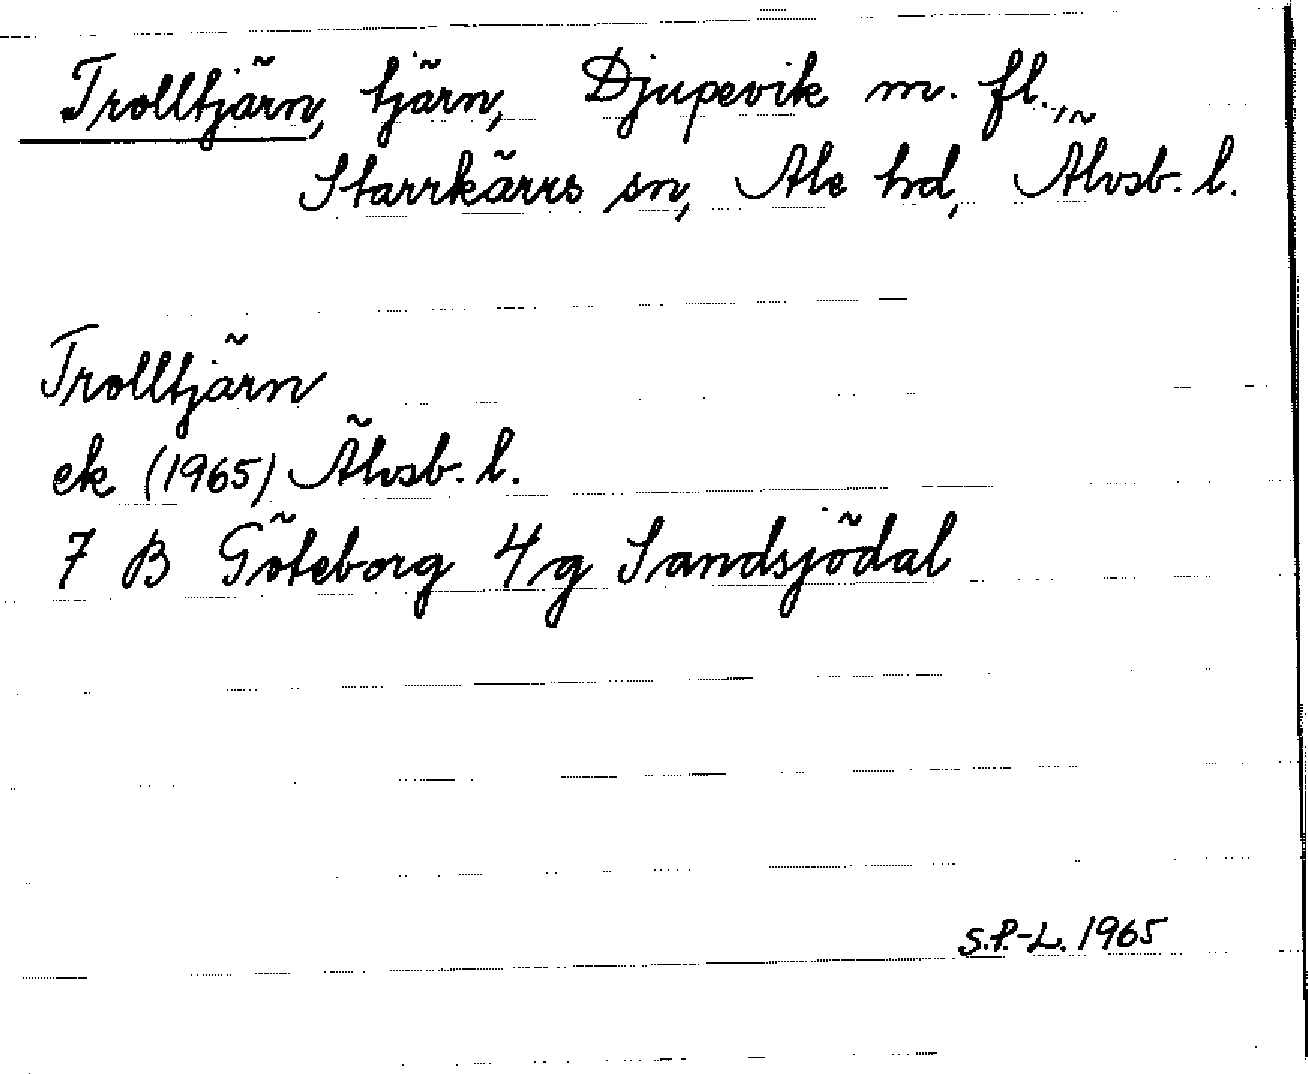 Trolltjärn, tjärn, Djupevik m. fl.,
Starrkärrs sn, Ale hd, Älvsb. l.
Trolltjärn
ek (1965) Älvsb. l.
7 B Göteborg 4g Sandsjödal
S.P.-L. 1965